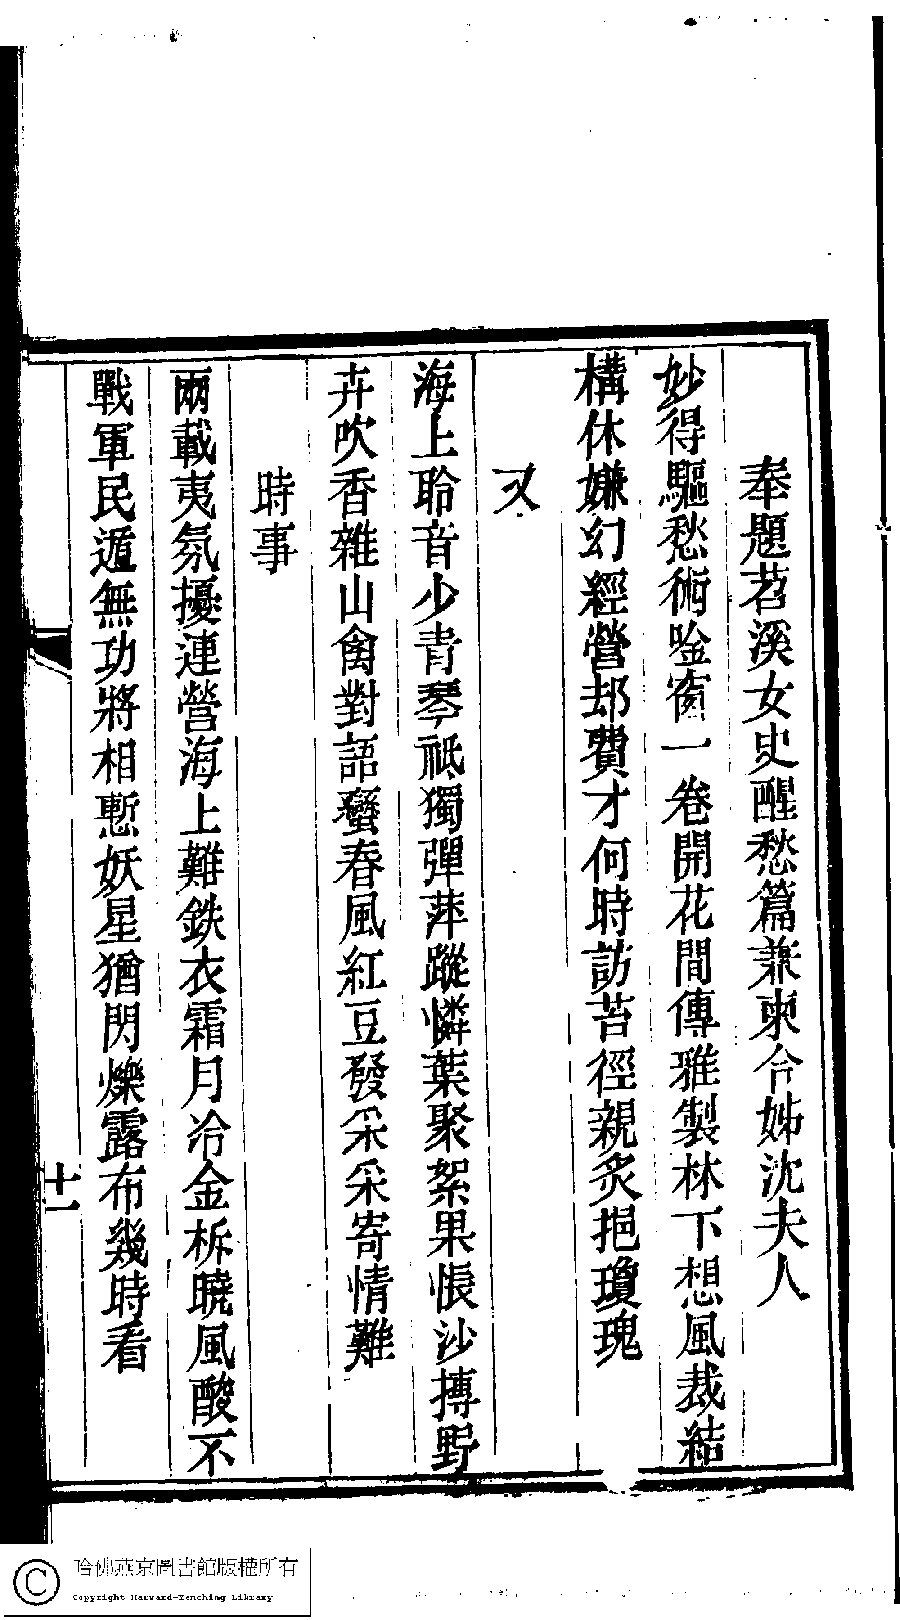 奉題苕溪女史醒愁篇兼柬令姊沈夫人
妙得驅愁術唫窗一卷開花間傳雅製林下想風裁結
構休嫌幻經營却費才何時訪苔徑親炙挹瓊瑰
又
海上聆音少青琴祗獨彈萍蹤憐葉聚絮果悵沙摶野
卉吹香雜山禽對語蠻春風紅豆發采采寄情難
時事
兩載夷氛擾連營海上難鉄衣霜月冷金柝曉風酸不
戰軍民遁無功將相慙妖星猶閃爍露布幾時看
十一
哈佛燕京圖書館版權所有
Copyright Harvard-Yenching Library